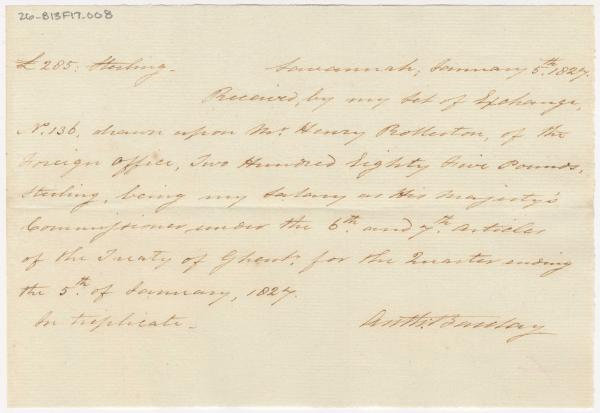 26-813F17.008
£ 285: Sterling. Savannah, January 5th. 1827.
Received, by my Set of Exchange,
No. 136, drawn upon Mr. Henry Rolleston, of the
Foreign Office, Two Hundred Eighty five Pounds,
Sterling, being my Salary as His Majesty's
Commissioner, under the 6th. and 7th. Articles
of the Treaty of Ghent, for the Quarter ending
the 5th. of January, 1827.
In triplicate. Anth: Barclay